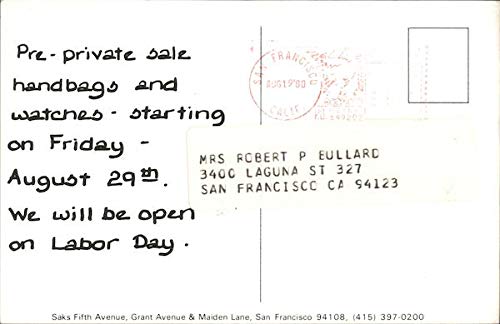 Pre-private sale
handbags and
watches - starting
on Friday -
August 29th.
We will be open
on Labor Day.
SAN FRANCISCO
AUG19'80
CALIF
MRS ROBERT P BULLARD
3400 LAGUNA ST 327
SAN FRANCISCO CA 94123
Saks Fifth Avenue, Grant Avenue & Maiden Lane, San Francisco 94108, (415) 397-0200